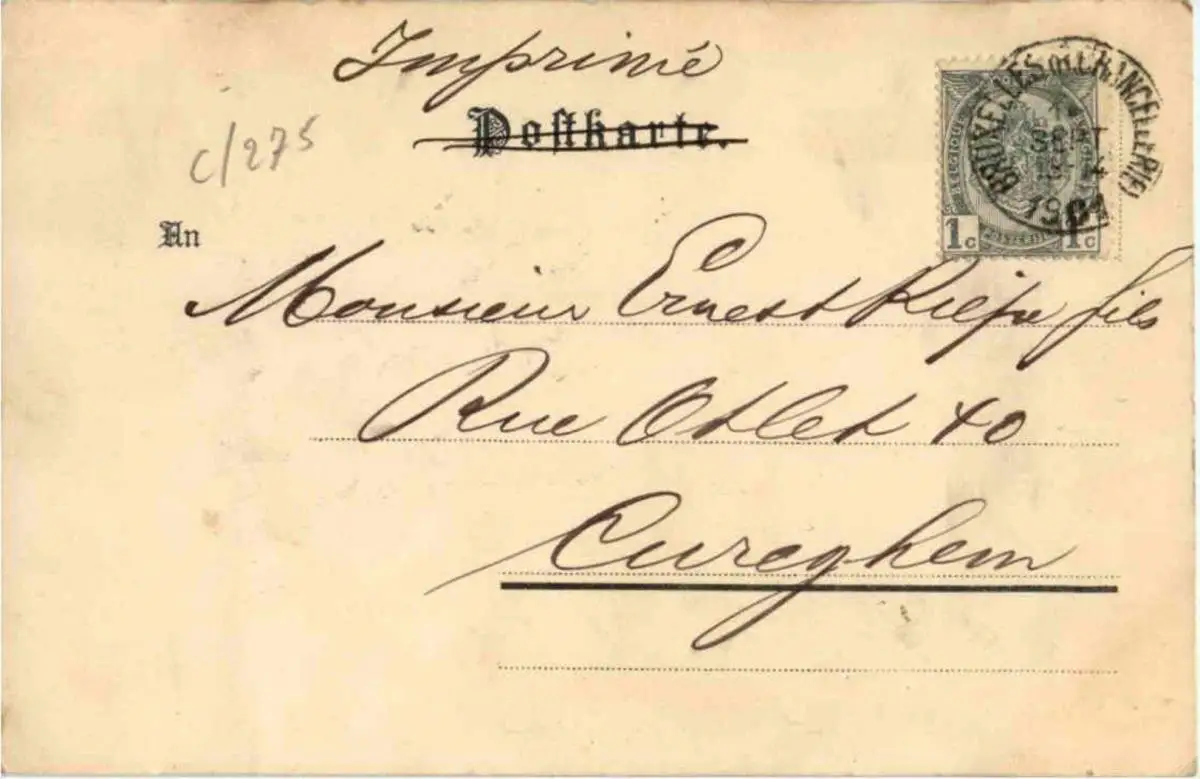 Imprimé
Postkarte.
c/275
An
BRUXELLES (R. CHANCELLERIE)
SEPT
1901
BELGIQUE
1c 1c
Monsieur Ernest Kiefe fils
Rue Otlet 40
Cureghem